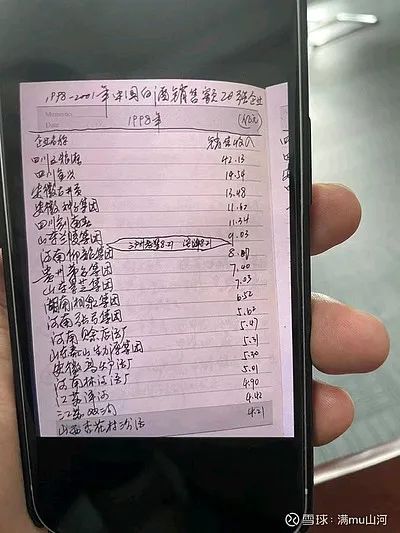 1998-2001年中国白酒销售额20强企业
Date
1998年 (亿元)
企业名称 销售收入
四川五粮液 42.13
四川全兴 19.54
安徽古井贡 13.48
安徽种子集团 11.62
四川剑南春 11.34
山东兰陵集团 9.03
泸州老窖8.27
河南仰韶集团
贵州茅台集团 7.40
山东景芝集团 7.03
湖南湘泉集团 6.52
河南张弓集团 5.62
河南赊店酒厂 5.47
集团 5.31
安徽 酒厂 5.30
河南林河酒厂 5.01
江苏洋河 4.90
江苏双沟 4.42
山西杏花村汾酒 4.21
雪球：满mu山河